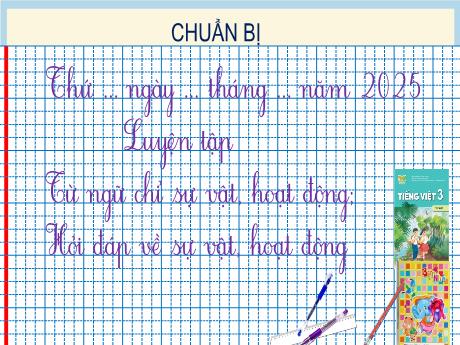 CHUẨN BỊ
Thứ ... ngày ... tháng ... năm 2025
Luyện tập
Từ ngữ chỉ sự vật, hoạt động;
Hỏi đáp về sự vật, hoạt động
TIẾNG VIỆT 3